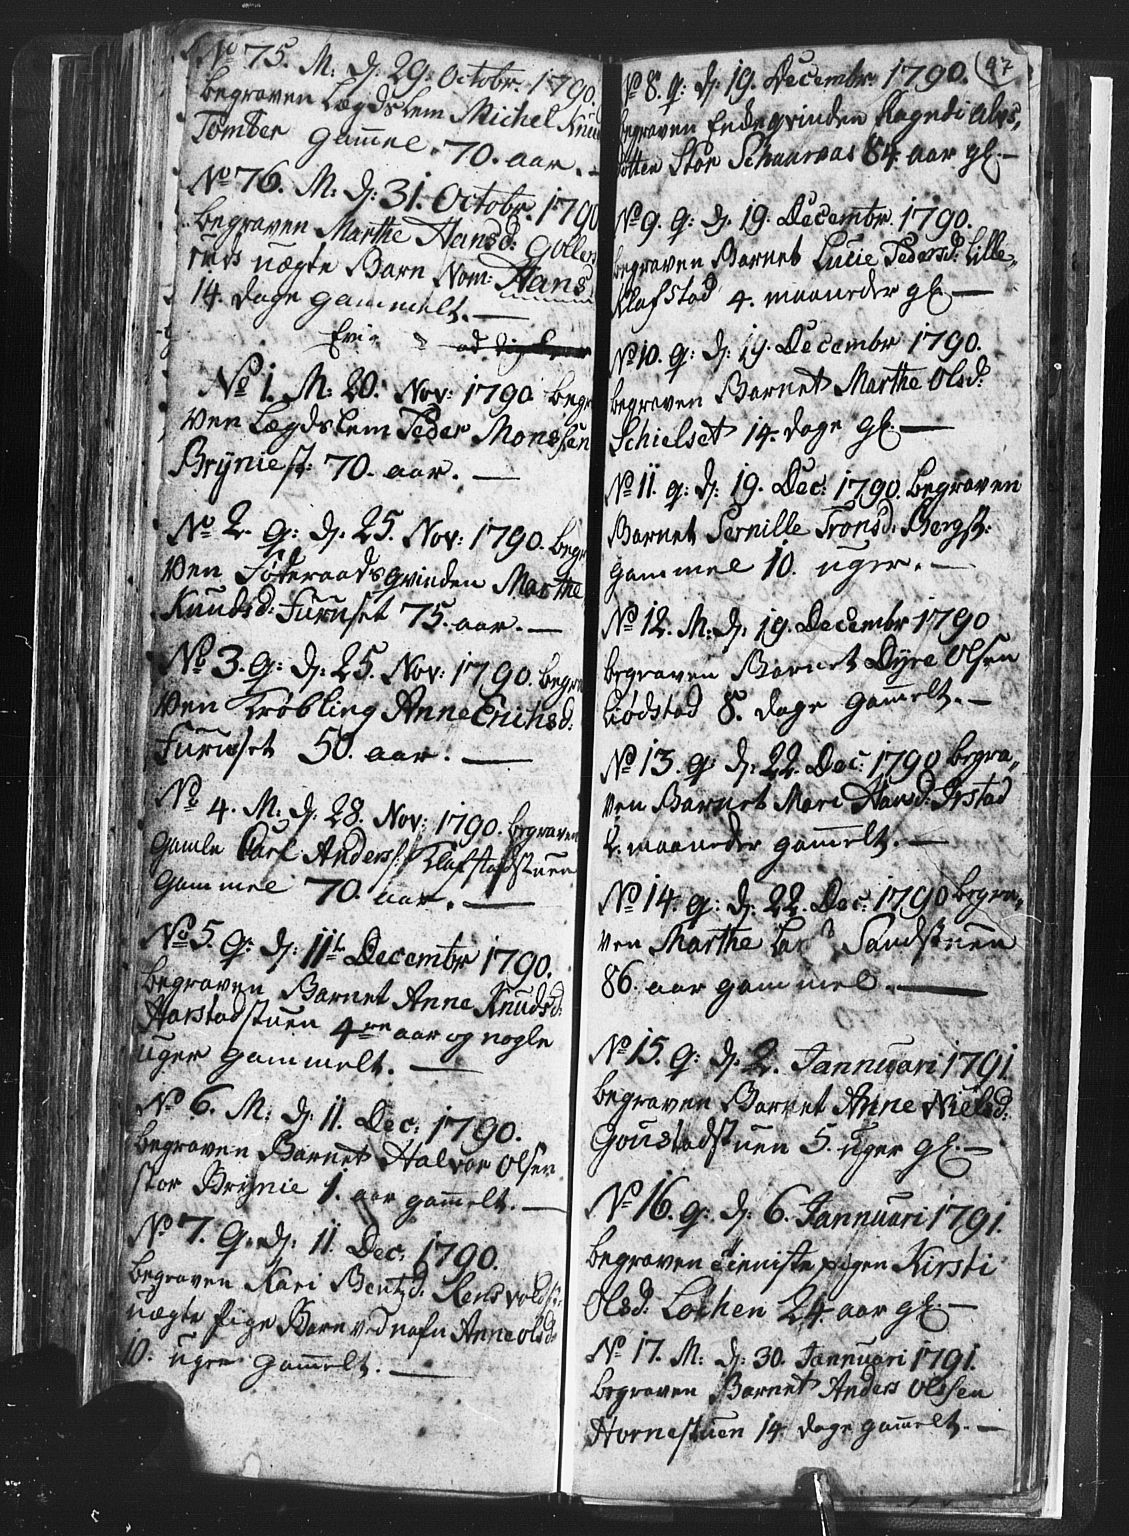 No 75. M: D: 29. Octobr. 1790.
begraven Lægdslem Michel Knud
Tomter gammel 70. aar. —
No 76. M: D: 31. Octobr. 1790
begraven Marthe Hansd:
uægte Barn Nom: Hans
14. dage gammelt. —
No 1. M: 20. Nov: 1790 begr
ven Lægdslem Peder Monsen
Brÿniest: 70. aar. —
No 2. q: D: 25. Nov: 1790. begr
ven Føderaads qvinden Marthe
Knudsd: Furuset 75. aar. —
No 3. q: D: 25. Nov: 1790. begra
ven Krøbling Anne Erichsd:
Furuset 50. aar. —
No 4. M. D: 28. Nov: 1790. begraven
Gamle Carl Anders: Klafstadstuen
gammel 70. aar. —
No 5. q: D: 11t Decembr 1790.
begraven Barnet Anne Knudsd:
Harstadstuen 4re aar og nogle
uger gammelt. —
No 6. M: D: 11. Dec: 1790.
begraven Barnet Halvor Olsen
stor Brÿnie 1. aar gam̄elt. —
No 7. q: D: 11. Dec: 1790.
begraven Kari Bentzd:
uægte pige Barn ved nafn Anne Olsd:
10. uger gam̄elt. —
97
No 8. q: D: 19. Decembr. 1790.
begraven Enkeqvinden Ragndi Alvs,
dotter Stor Schaarvas 84. aar gl. —
No 9. q: D: 19. Decembr 1790.
begraven Barnet Lucie Pedersd: Lille,
Klafstad 4. maaneder gl. —
No 10. q: D: 19. Decembr 1790.
begraven Barnet Marthe Olsd:
Schielset 14. dage gl. —
No 11. q: D: 19. Dec: 1790. begraven
Barnet Pernille Tronsd: Bergst:
gammel 10. uger. —
No 12. M: D: 19. Decembr 1790
begraven Barnet Dÿre Olsen
Liødstad 8. dage gam̄elt. —
No 13. q: D: 22. Dec: 1790 begra,,
ven Barnet Mari Hansd:
2. maaneder gam̄elt. —
No 14. q: D: 22. Dec: 1790 begra,,
ven Marthe Lars Sandstuen
86. aar gammel. —
No 15. q: D: 2. Jannuari 1791.
begraven Barnet Anne Nielsd:
Goustadstuen 5. uger gl. —
No 16. q: D: 6. Jannuari 1791.
begraven tieniste pigen Kirsti
Olsd: Lochen 24. aar gl. —
No 17. M: D: 30. Jannuari 1791.
begraven Barnet Anders Olssen
Hornestuen 14. dage gam̄elt. —